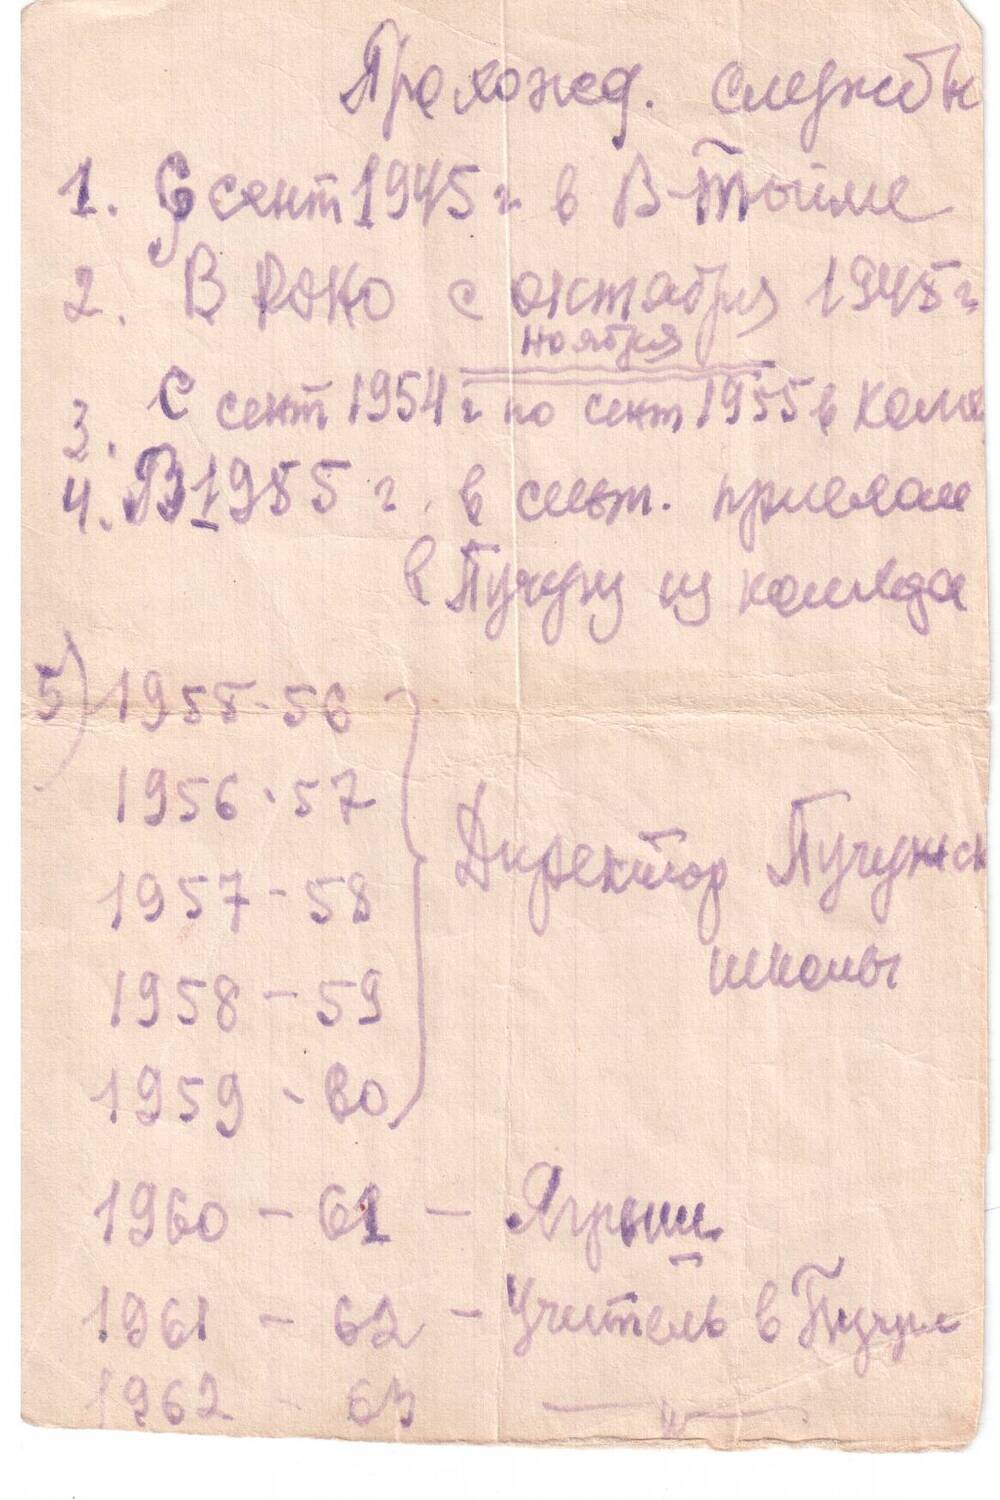 Прохожд. службы
1. С сент 1945 г. в В-Тойме
2. В РОНО с октября 1945 г
ноября
3. С сент 1954 г по сент 1955 в
4. В 1955 г. в сент. приехал
в Пучугу из
5) 1955-56
1956-57
1957-58
1958-59
1959-60
Директор Пучужск
школы
1960-61 - Ягрыш
1961-62 - Учитель в Пучуге
1962-63 —"—